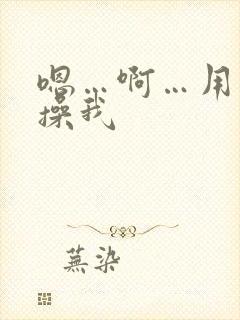 嗯…啊…用
操我
蕪染